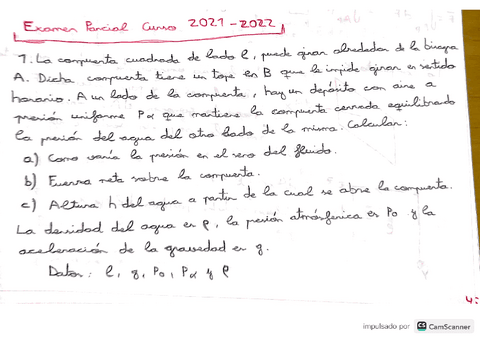 Examen Parcial Curso 2021-2022
1. La compuerta cuadrada de lado l, puede girar alrededor de la bisagra
A. Dicha compuerta tiene un tope en B que le impide girar en sentido
horario. A un lado de la compuerta, hay un depósito con aire a
presión uniforme Pα que mantiene la compuerta cerrada equilibrando
la presión del agua del otro lado de la misma. Calcular:
a) Como varía la presión en el seno del fluido.
b) Fuerza neta sobre la compuerta.
c) Altura h del agua a partir de la cual se abre la compuerta.
La densidad del agua es ρ, la presión atmosférica es P0 y la
aceleración de la gravedad es g.
Datos: l, g, P0, Pα y ρ
impulsado por CS CamScanner